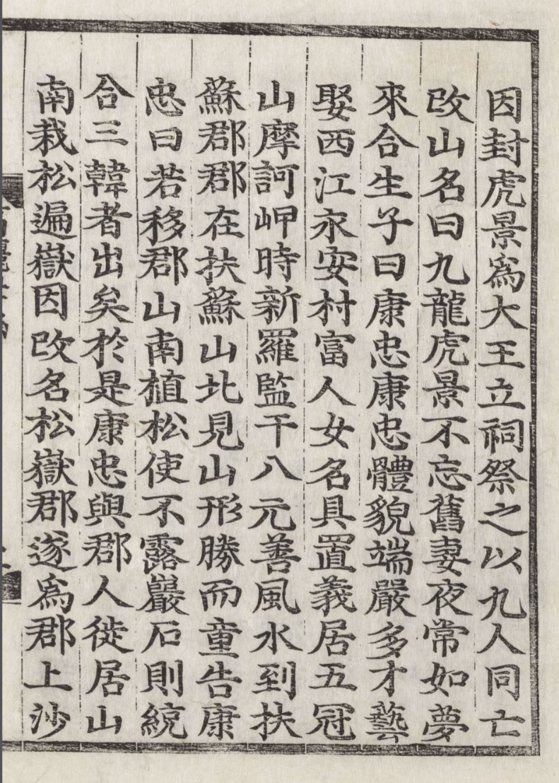 因封虎景爲大王立祠祭之以九人同亡
改山名曰九龍虎景不忘舊妻夜常如夢
來合生子曰康忠康忠體貌端嚴多才藝
娶西江永安村富人女名具置義居五冠
山摩訶岬時新羅監干八元善風水到扶
蘇郡郡在扶蘇山北見山形勝而童告康
忠曰若移郡山南植松使不露巖石則統
合三韓者出矣於是康忠與郡人徙居山
南栽松遍嶽因改名松嶽郡遂爲郡上沙